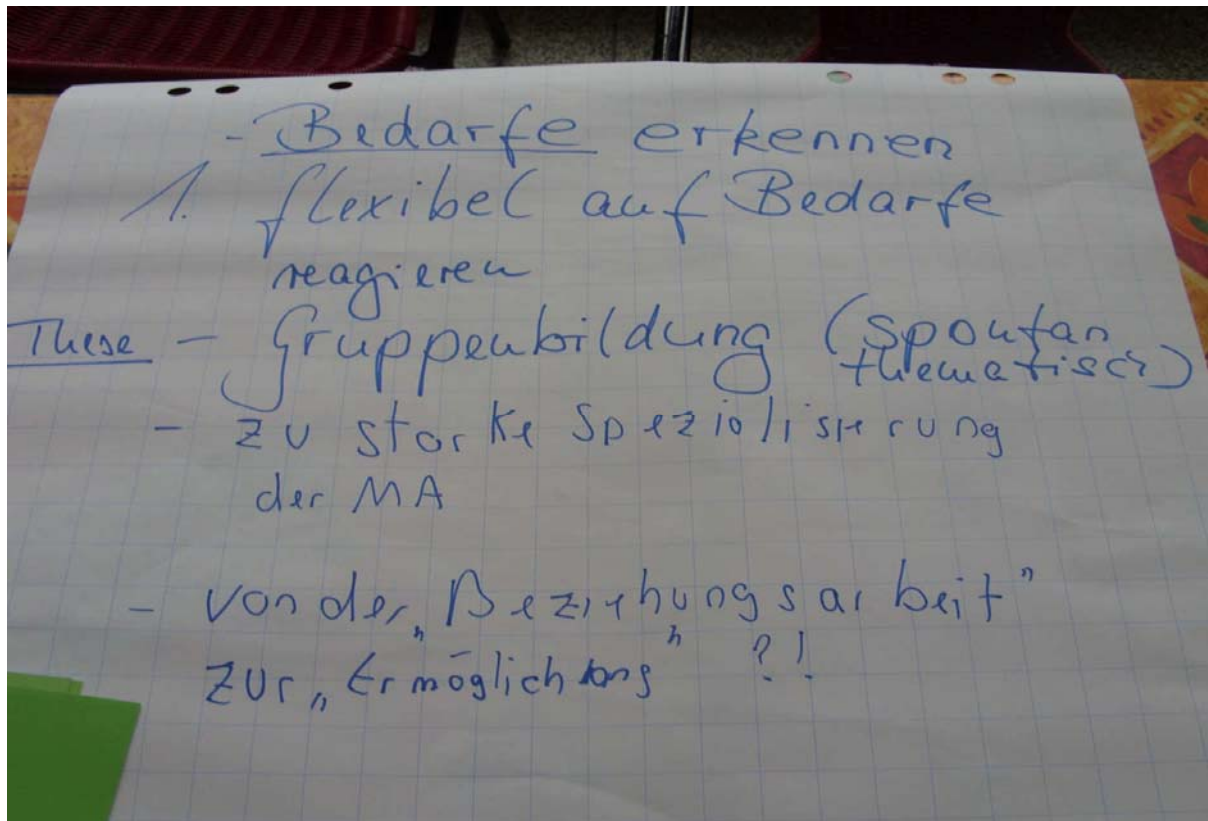 - Bedarfe erkennen
1. flexibel auf Bedarfe
reagieren
These - Gruppenbildung (spontan
thematisch)
- zu starke Spezialisierung
der MA
- von der „Beziehungsarbeit"
zur „Ermöglichung" ?!